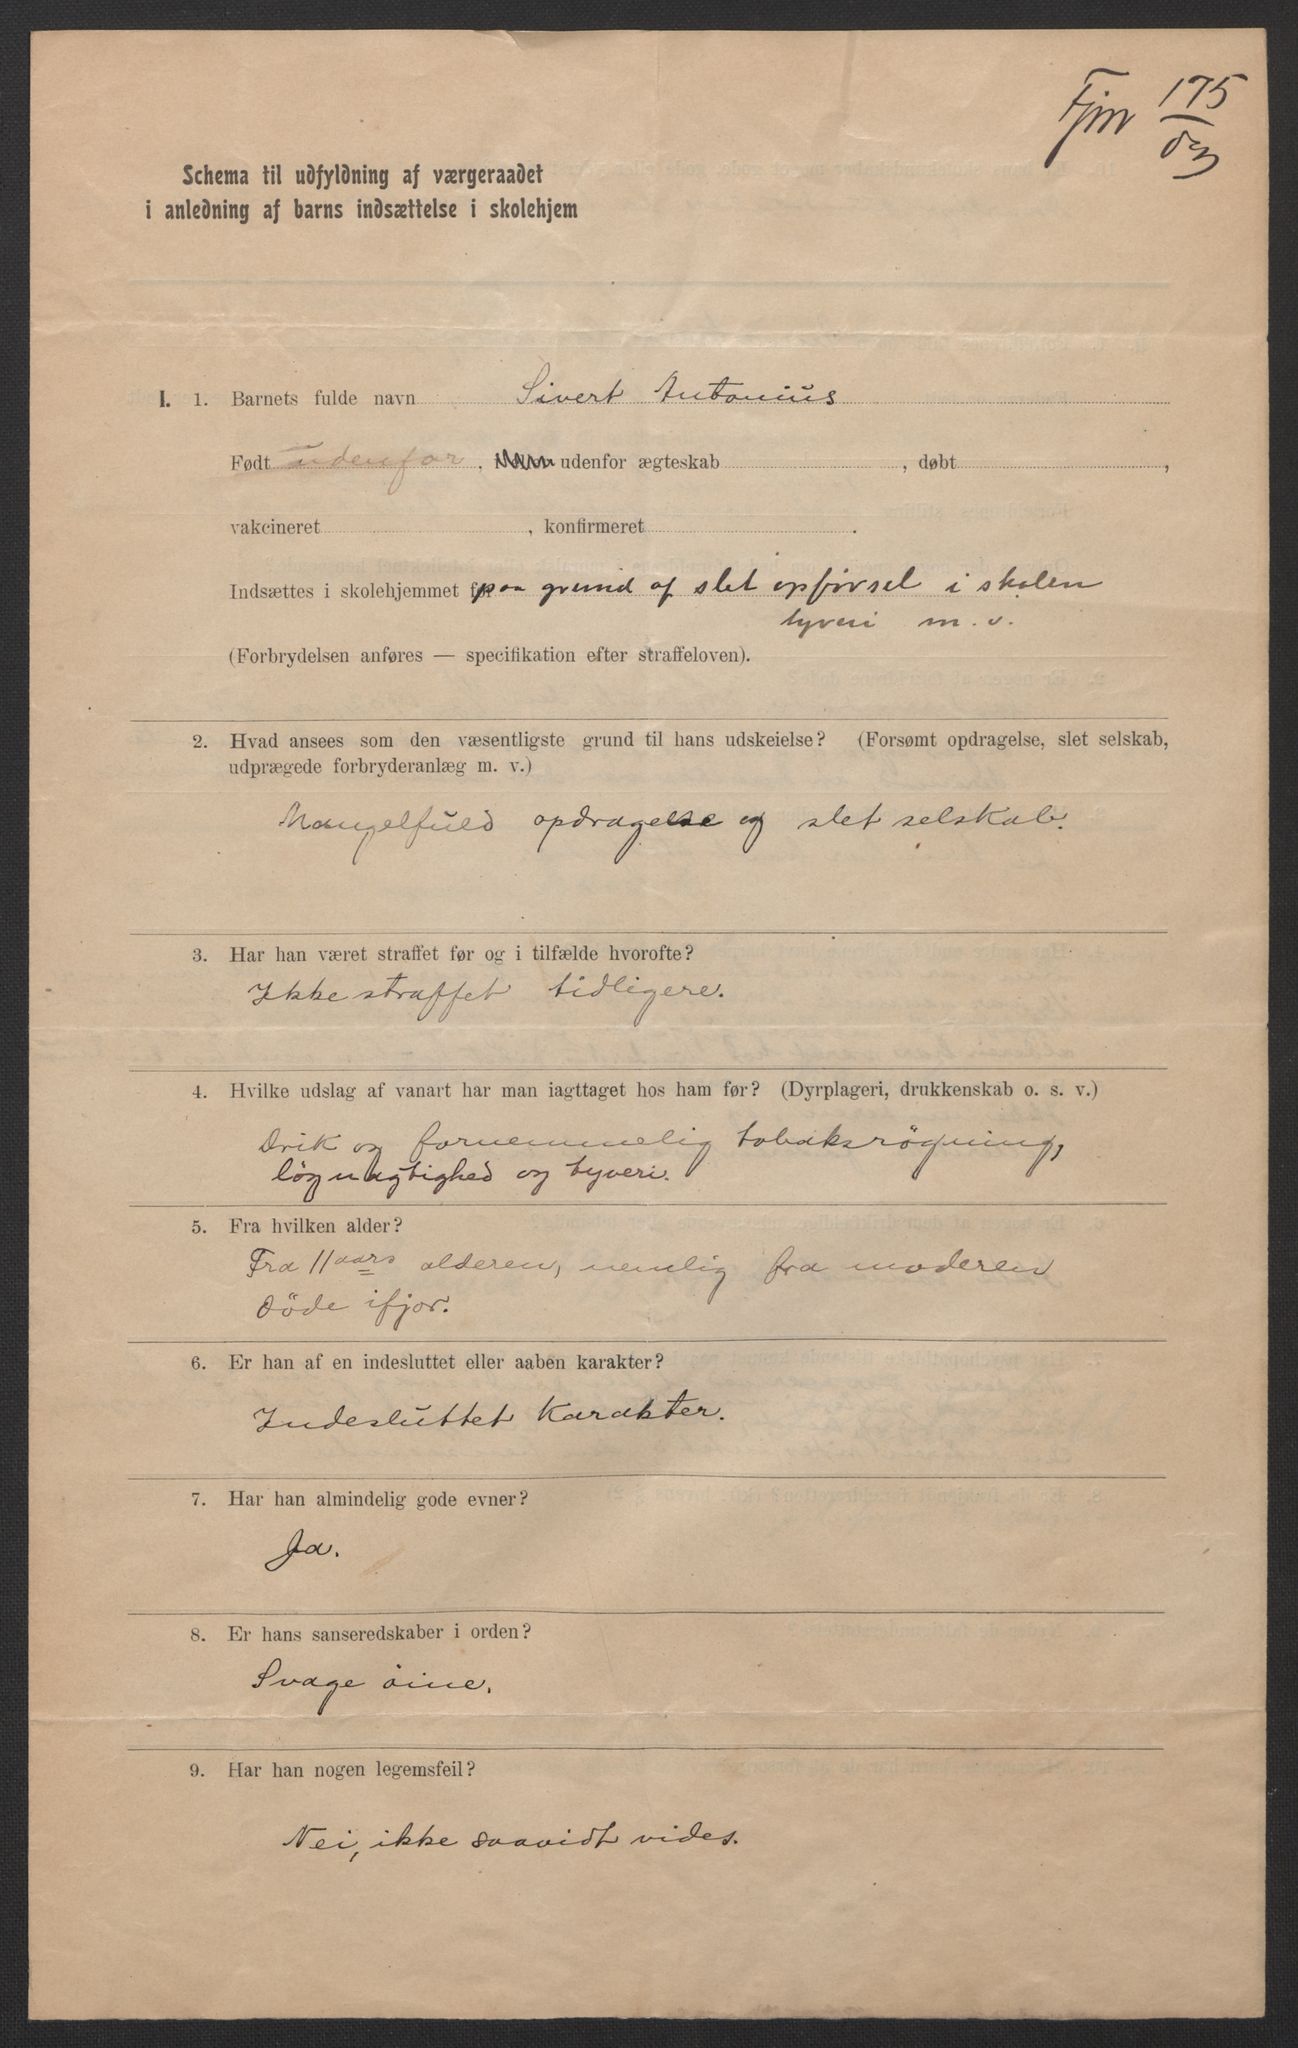 175
Schema til udfyldning af værgeraadet
i anledning af barns indsættelse i skolehjem
I. 1. Barnets fulde navn Sivert Antonius
Født udenfor, udenfor ægteskab , døbt ,
vakcineret , konfirmeret .
Indsættes i skolehjemmet for paa grund af slet opførsel i skolen
tyveri m. v.
(Forbrydelsen anføres — specifikation efter straffeloven).
2. Hvad ansees som den væsentligste grund til hans udskeielse? (Forsømt opdragelse, slet selskab,
udprægede forbryderanlæg m. v.)
Mangelfuld opdragelse og slet selskab.
3. Har han været straffet før og i tilfælde hvorofte?
Ikke straffet tidligere.
4. Hvilke udslag af vanart har man iagttaget hos ham før? (Dyrplageri, drukkenskab o. s. v.)
Drik og fornemmelig tobaksrøgning,
løgnagtighed og tyveri.
5. Fra hvilken alder?
Fra 11 aars alderen, nemlig fra moderen
døde ifjor.
6. Er han af en indesluttet eller aaben karakter?
Indesluttet Karakter.
7. Har han almindelig gode evner?
Ja.
8. Er hans sanseredskaber i orden?
Svage öine.
9. Har han nogen legemsfeil?
Nei, ikke saavidt vides.